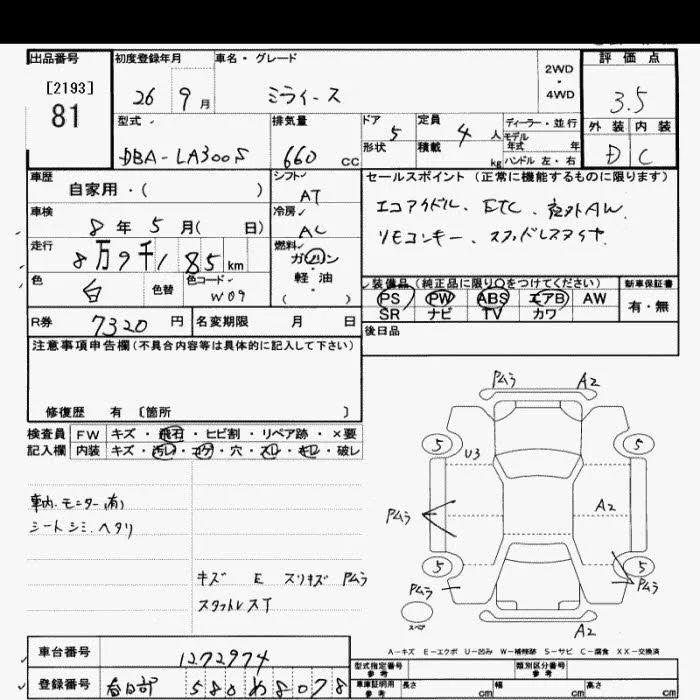 出品番号 初度登録年月 車名・グレード 2WD ・ 4WD 評価点
[2193]
81 26 9月 ミライース 3.5
外装 内装
D C
型式 排気量 ドア 5 定員 4人 ディーラー・並行
モデル年式 年
DBA-LA300S 660 CC 形状 積載 kg ハンドル 左・右
車歴 シフト セールスポイント (正常に機能するものに限ります)
自家用・( ) AT
車検 冷房 エコアイドル、ETC、社外AW、
8年 5月( 日) AC リモコンキー、スタッドレスタイヤ
走行 燃料
8万9千185km ガソリン
軽油
( )
色 白 色替 色コード W09
装備品 (純正品に限り○をつけてください) 新車保証書
PS PW ABS エアB AW 有・無
SR ナビ TV カワ
R券 7320円 名変期限 月 日 後日品
注意事項申告欄(不具合内容等は具体的に記入して下さい)
修復歴 有 〔箇所 〕
検査員 FW キズ・飛石・ヒビ割・リペア跡・×要
記入欄 内装 キズ・汚レ・コゲ・穴・スレ・キレ・破レ
車内モニター(有)
シートシミ、ヘタリ
キズ E スリキズ Pムラ
スタットレスT
Pムラ A2
5 U3 5
Pムラ A2
5 5
Pムラ Pムラ
スペア A2
A-キズ E-エクボ U-凹み W-補修跡 S-サビ C-腐食 XX-交換済
車台番号 1272974
登録番号 春日部 580 め 8078
型式指定番号 参考 類別区分番号 参考
車庫証明用 参考 長さ cm 幅 cm 高さ cm